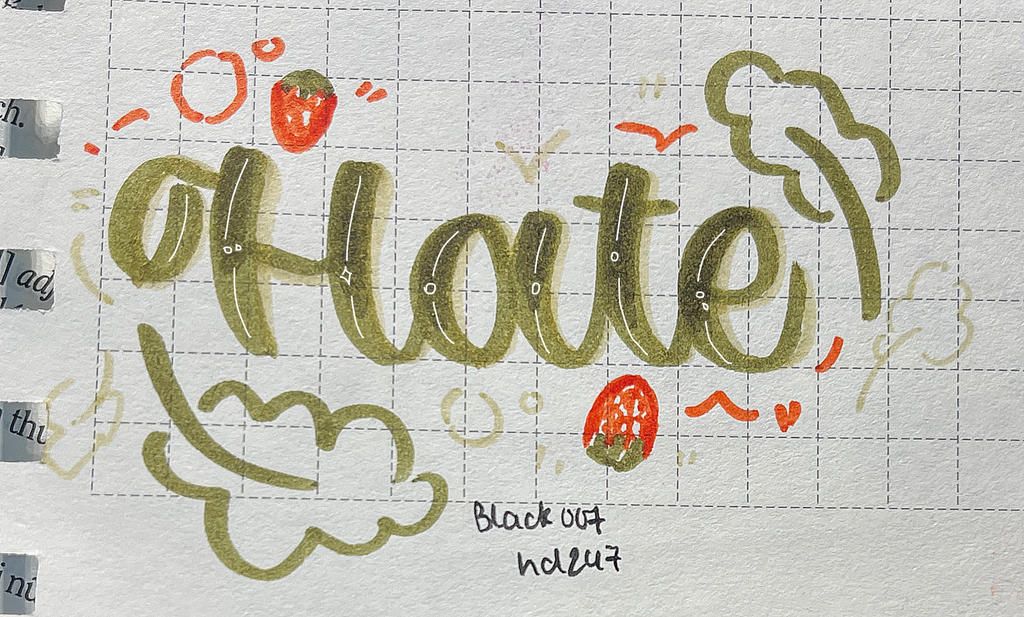 ch.
Hate
] adj
thu
Black 007
hd247
i nu